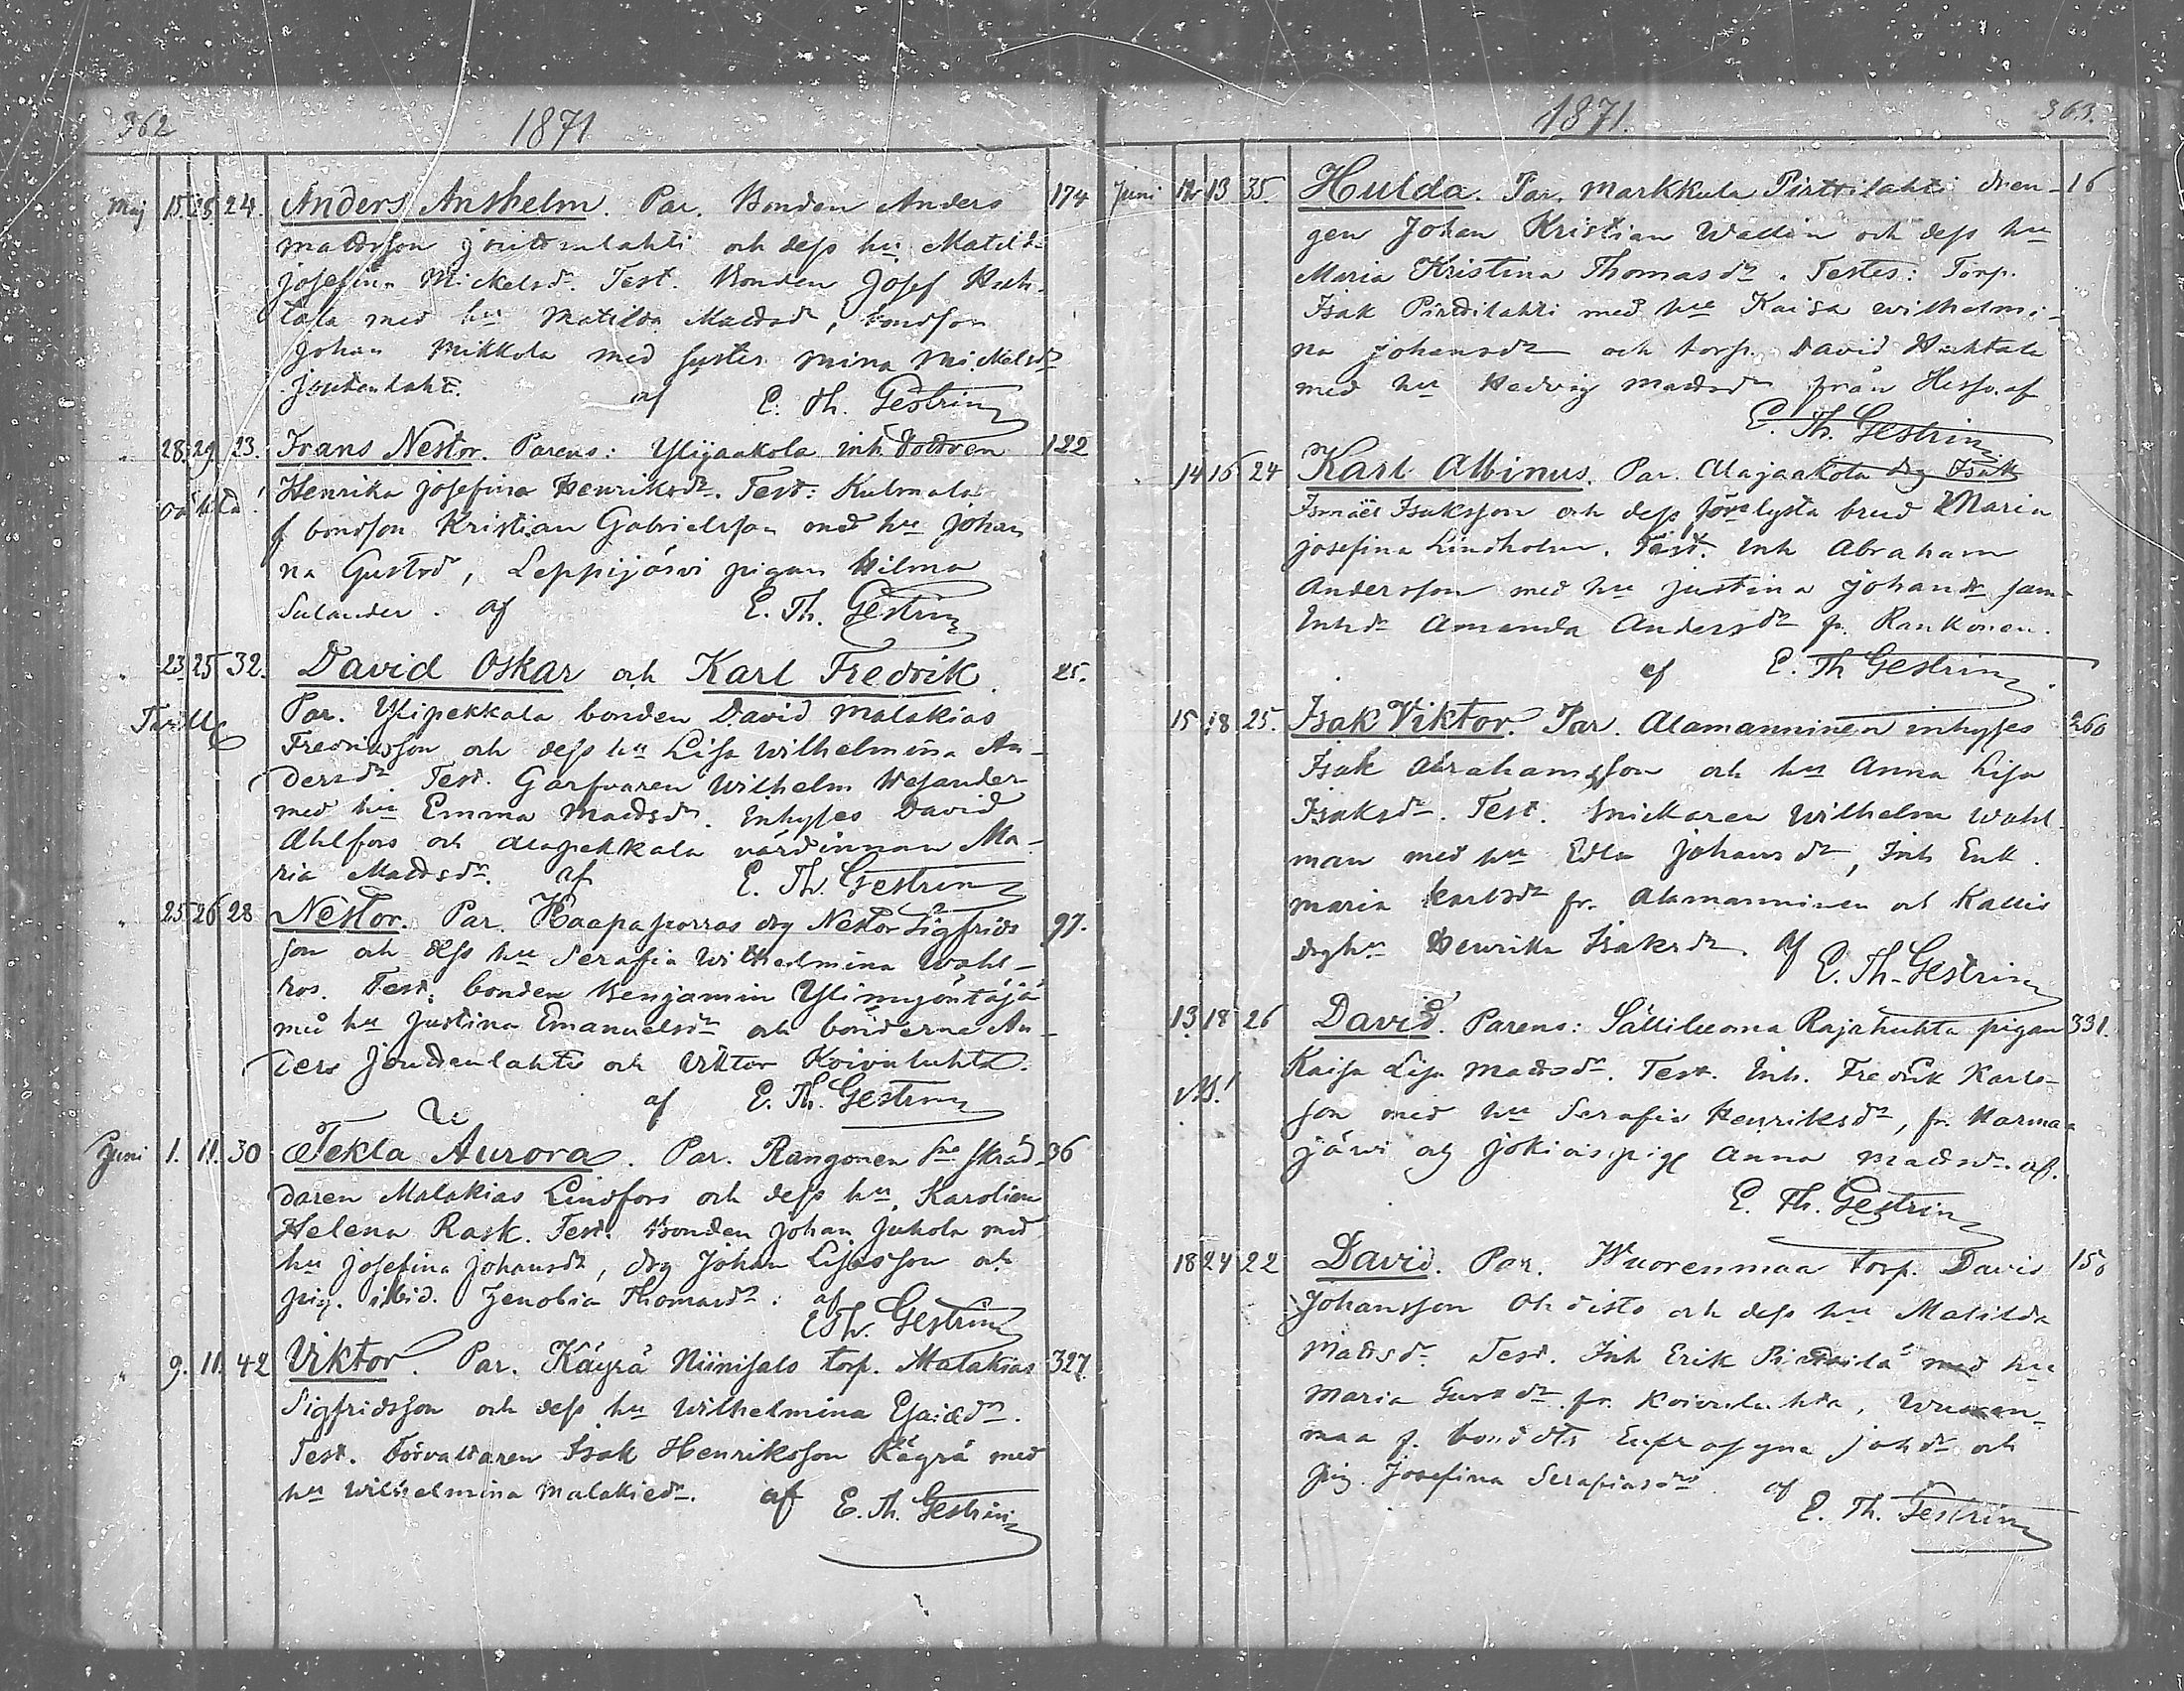 362
1871
Maj 15. 25. 24. Anders Anshelm. Par. Bonden Anders 174
Mattsson Joutsenlahti och dess hu Matilda
Josefina Mickelsdr. Test. Bonden Josef Huh-
tala med hu Matilda Mattsdr, bondson
Johan Mikkola med syster Mina Mickelsdr
Joutsenlahti. af E. Th. Gestrin
" 28. 29. 23. Frans Nestor. Parens: Ylijaakola inh. dottren 122
oäkta! Henrika Josefina Henriksdr. Test: Kulmala
f. bondson Kristian Gabrielsson med hu Johan
na Gustdr, Leppijärvi pigan Hilma
Sulander. af E. Th. Gestrin
" 23 25 32. David Oskar och Karl Fredrik. 25.
Par. Ylipekkala bonden David Malakias
Fredriksson och dess hu Lisa Wilhelmina An-
dersdr. Test. Garfvaren Wilhelm Wesander
med hu Emma Mattsdr. Inhyses David
Ahlfors och Alapekkala värdinnan Ma-
ria Mattsdr. af E. Th. Gestrin
" 25 26 28 Nestor. Par. Haapaporras drg Nestor Sigfrids 97.
son och dess hu Serafia Wilhelmina Wahl-
ros. Test: bonden Benjamin Ylimyöntäjä
med hu Justina Emanuelsdr och bönderne An-
ders Joutsenlahti och Viktor Koivuluhta.
af E. Th. Gestrin
Juni 1. 11. 30 Tekla Aurora. Par. Rangonen Sne skräd- 36
daren Malakias Lindfors och dess hu Karolina
Helena Rask. Test. Bonden Johan Juhola med
hu Josefina Johansdr, drg Johan Liisasson och
pig. ibid. Zenobia Thomasdr: af
E Th. Gestrin
" 9. 11. 42 Viktor. Par. Käyrä Niinisalo torp. Malakias 327.
Sigfridsson och dess hu Wilhelmina Esaiædr.
Test. Förvaltaren Isak Henriksson Käyrä med
hu Wilhelmina Malakiedr. af E. Th. Gestrin
1871.
363.
Juni 12 13 35. Hulda. Par. Markkula Pirttilahti dren- 16
gen Johan Kristian Wallin och dess hu
Maria Kristina Thomasdr. Testes: Torp.
Isak Pirttilahti med hu Kaisa Wilhelmi-
na Johansdr och torp. David Huhtala
med hu Hedvig Mattsdr från Hirfso. af
E. Th. Gestrin
14 16 24 Karl Albinus. Par. Alajaakola drg Isak
Ismaël Isaksson och dess förelysta brud Maria
Josefina Lindholm. Test. Inh Abraham
Andersson med hu Justina Johandr sam-
Inhdr Amanda Andersdr fr. Rankonen.
af E. Th Gestrin
15 18 25. Isak Viktor. Par. Alamanninen inhyses 260
Isak Abrahamsson och hu Anna Lisa
Isaksdr. Test. Snickaren Wilhelm Wahl
man med hu Edla Johansdr, Inh Enk.
Maria Karlsdr fr. Alamanninen och Kallis
drghu Henrika Isaksdr. af E. Th. Gestrin
13. 18 26 David. Parens: Sälliluoma Rajahuhta pigan 331.
Kaisa Lisa Mattsdr. Test. Inh. Fredrik Karls-
son med hu Serafia Henriksdr, fr. Karma
järvi och Jokiois pig Anna Mattsdr. af.
E. Th. Gestrin
18 24 22 David. Par. Wuorenmaa torp. David 150
Johansson Ohdisto och dess hu Matilda
Mattsdr. Test. Inh Erik Pirttilä med hu
Maria Gustdr fr. Koivuluhta, Wuoren-
maa f. bonddtr Eufrosyna Johdr och
pig. Josefina Serafiasdr af
E. Th. Gestrin